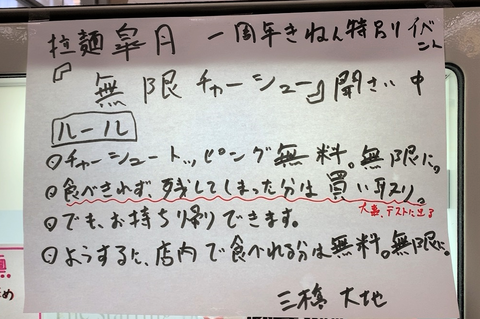 拉麺 皐月 一周年きねん特別イベント
『無限チャーシュー』開さい中
ルール
◎チャーシュートッピング無料。無限に。
◎食べきれず、残してしまった分は買い取り。
大事、テストに出る
◎でも、お持ち帰りできます。
◎ようするに、店内で食べれる分は無料。無限に。
大地